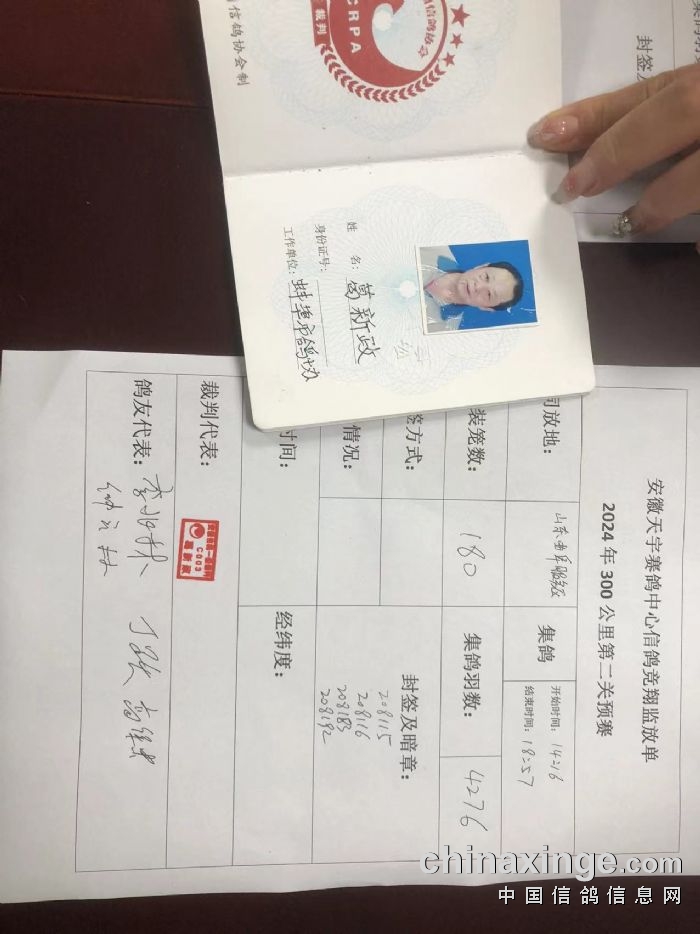 信鸽协会制
裁判
CRPA
信鸽协会
姓 名: 葛新政
身份证号:
工作单位: 蚌埠市鸽协
封签及
安徽天宇赛鸽中心信鸽竞翔监放单
2024 年 300 公里第二关预赛
司放地:
山东曲阜
集鸽
开始时间: 14:16
结束时间: 18:57
装笼数: 180
集鸽羽数: 4276
签方式:
封签及暗章:
208115
208116
208183
208192
情况:
时间:
经纬度:
裁判代表:
C003
葛新政
鸽友代表:
chinaxinge.com
中国信鸽信息网